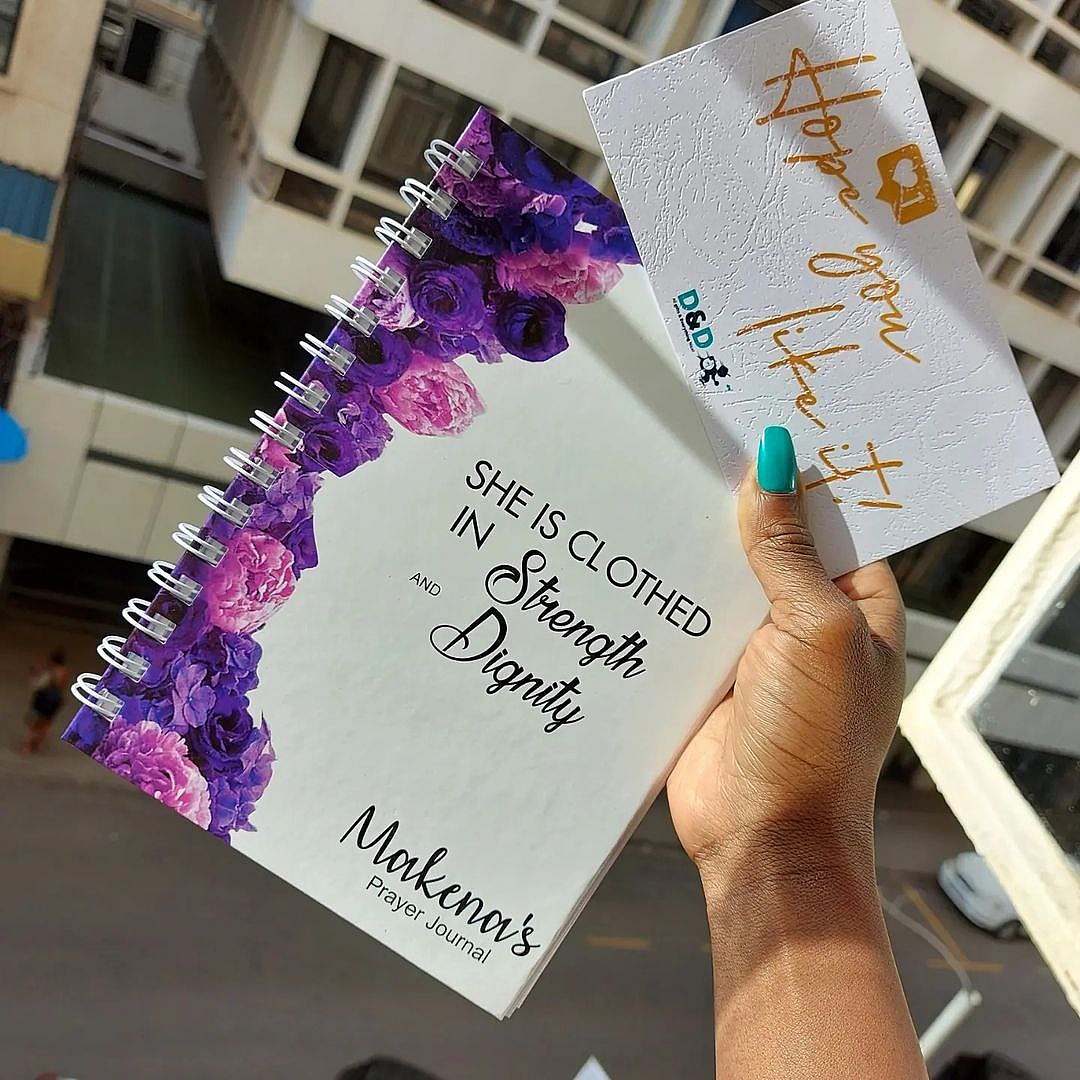 SHE IS CLOTHED
IN Strength
AND Dignity
Makena's
Prayer Journal
Hope you
like it!
1
D&D